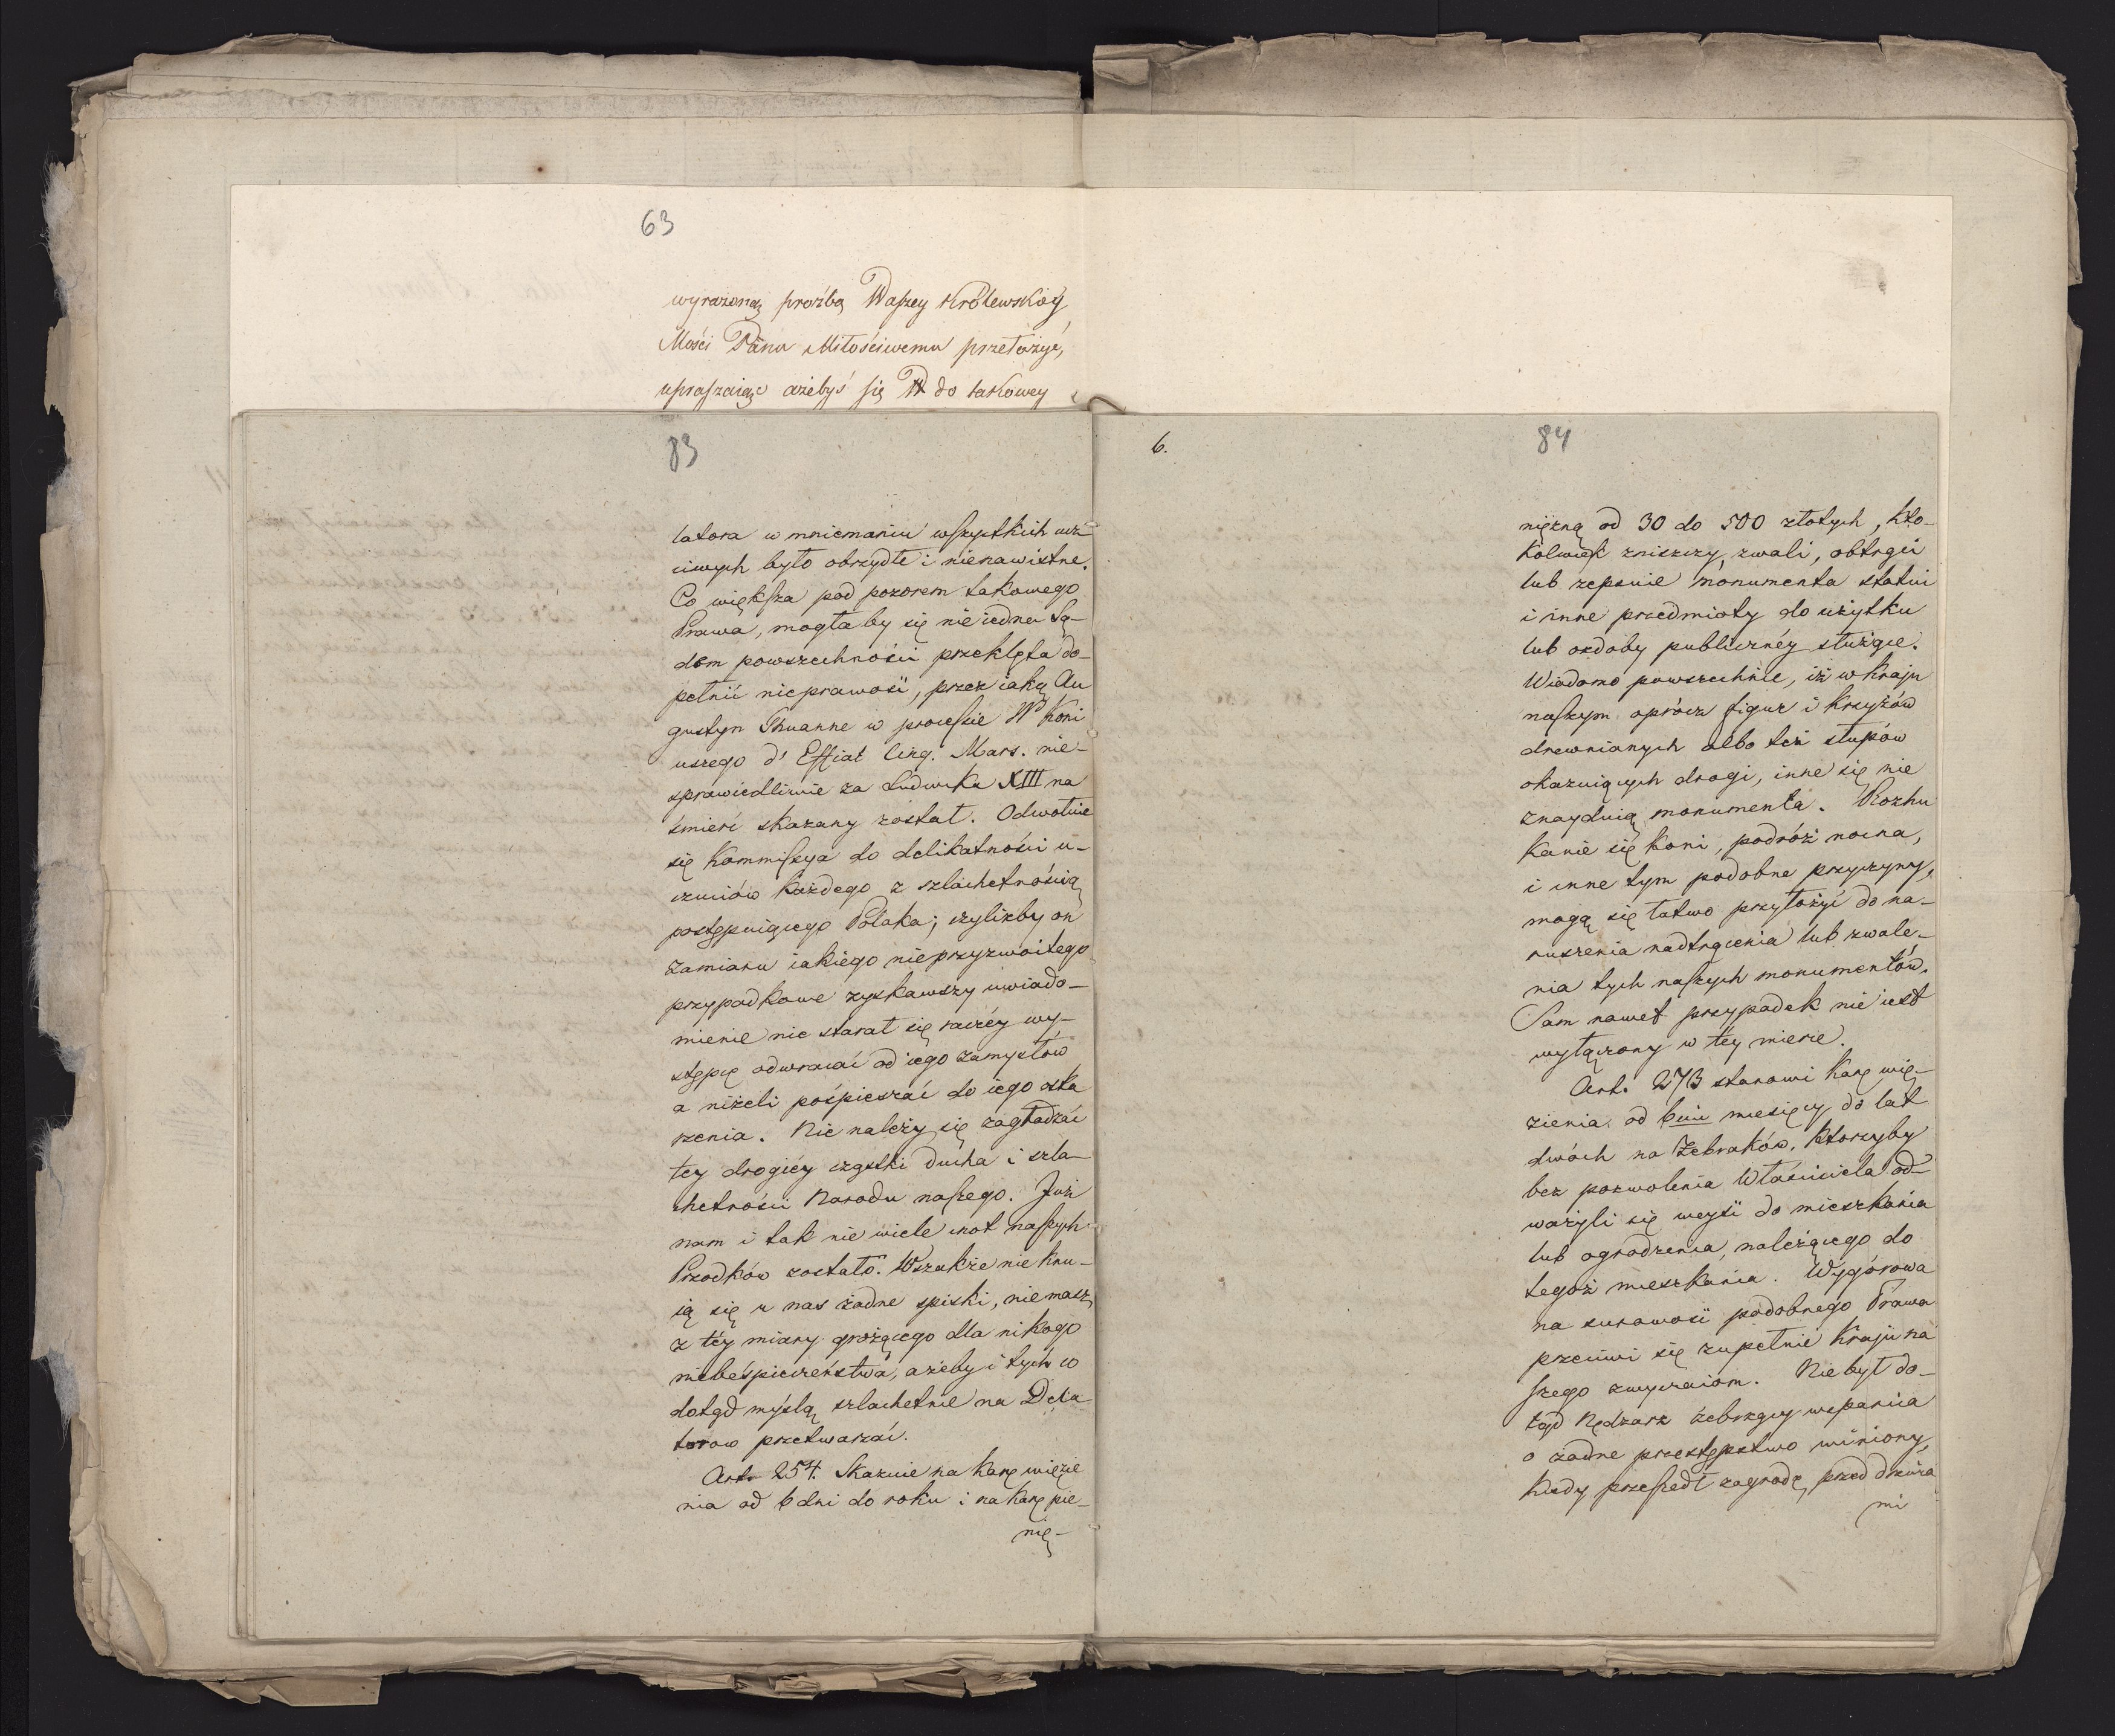 63
wyrażoną proźbą Waszey Królewskiéy
Mości Panu Miłościwemu przełożyć,
upraszaiąc ażebyś się do takowey
83
latora w mniemaniu wszystkich ucz-
ciwych było obrzydłe i nienawistne.
Co większa pod pozorem takowego
Prawa, mogłaby się nie iedna Są-
dem powszechności przeklęta do-
pełnić nieprawość, przez iaką Au
gustyn Thuanne w processie Wo Koni
uszego d'Effiat Cinq. Mars. nie-
sprawiedliwie za Ludwika XIII na
śmierć skazany został. Odwołuie
się Kommissya do delikatności u-
czuciów każdego z szlachetnością
postępuiącego Polaka; czyliżby on
zamiaru iakiego nieprzyzwoitego
przypadkowe zyskawszy uwiado-
mienie nie starał się raczéy wy-
stępcę odwracać od iego zamysłów
a niżeli pośpieszać do iego oska
rzenia. Nie należy się zagładzać
tey drogiéy cząstki ducha i szla-
chetności Narodu naszego. Już
nam i tak nie wiele cnot naszych
Przodków zostało. Wszakże nie knu-
ią się u nas żadne spiski, nie masz
z téy miary grożącego dla nikogo
niebeśpieczeństwa, ażeby i tych co
dotąd myślą szlachetnie na Dela
torow przetwarzać.
Art. 254. Skazuie na karę więzie
nia od 6 dni do roku i na karę pie-
nię-
6.
84
niężną od 30 do 500 złotych, kto-
kolwiek zniszczy, zwali, obtrąci
lub zepsuie monumenta statui
i inne przedmioty do użytku
lub ozdoby publicznéy służące.
Wiadomo powszechnie, iż w kraju
naszym oprócz figur i krzyżów
drewnianych albo też słupów
okazuiących drogi, inne się nie
znayduią monumenta. Rozhu
kanie się koni, podróż nocna,
i inne tym podobne przyczyny,
mogą się łatwo przyłożyć do na-
ruszenia nadtrącenia lub zwale-
nia tych naszych monumentów.
Sam nawet przypadek nie iest
wyłączony w téy mierze.
Art. 273 stanowi karę wię-
zienia od 6ciu miesięcy do lat
dwóch na Żebraków, którzyby
bez pozwolenia Właściciela od-
ważyli się weyść do mieszkania
lub ogrodzenia, należącego do
tegoż mieszkania. Wygórowa
na surowość podobnego Prawa
przeciwi się zupełnie Kraju na
szego zwyczaiom. Nie był do-
tąd Nędzarz żebrzący wsparcia
o żadne przestępstwo winiony,
kiedy przeszedł zagrodę, przed drzwia
mi